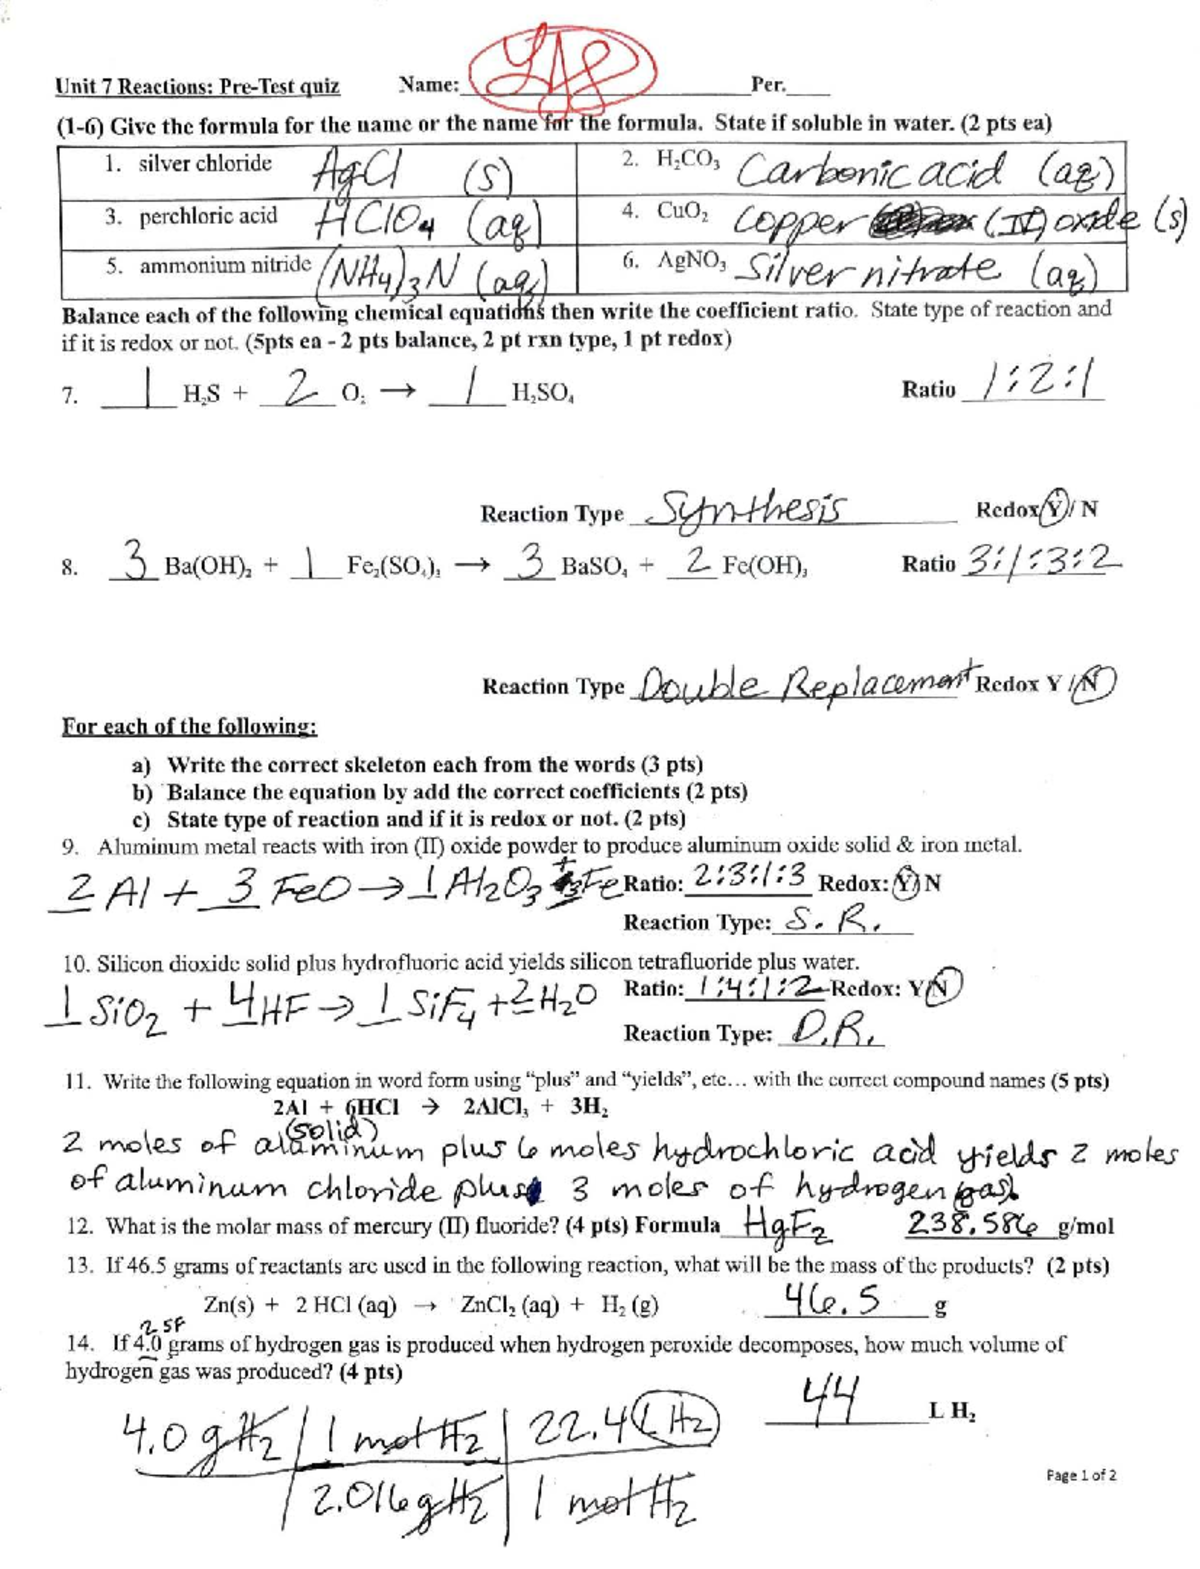 Unit 7 Reactions: Pre-Test quiz Name: Per.
(1-6) Give the formula for the name or the name for the formula. State if soluble in water. (2 pts ea)
1. silver chloride AgCl (s) 2. H₂CO₃ Carbonic acid (aq)
3. perchloric acid HClO₄ (aq) 4. CuO₂ Copper (IV) oxide (s)
5. ammonium nitride (NH₄)₃N (aq) 6. AgNO₃ Silver nitrate (aq)
Balance each of the following chemical equations then write the coefficient ratio. State type of reaction and
if it is redox or not. (5pts ea - 2 pts balance, 2 pt rxn type, 1 pt redox)
7. 1 H₂S + 2 O₂ → 1 H₂SO₄ Ratio 1:2:1
Reaction Type Synthesis Redox Y / N
8. 3 Ba(OH)₂ + 1 Fe₂(SO₄)₃ → 3 BaSO₄ + 2 Fe(OH)₃ Ratio 3:1:3:2
Reaction Type Double Replacement Redox Y / N
For each of the following:
a) Write the correct skeleton each from the words (3 pts)
b) Balance the equation by add the correct coefficients (2 pts)
c) State type of reaction and if it is redox or not. (2 pts)
9. Aluminum metal reacts with iron (II) oxide powder to produce aluminum oxide solid & iron metal.
2 Al + 3 FeO → 1 Al₂O₃ + 3Fe Ratio: 2:3:1:3 Redox: Y/N
Reaction Type: S.R.
10. Silicon dioxide solid plus hydrofluoric acid yields silicon tetrafluoride plus water.
1 SiO₂ + 4HF → 1 SiF₄ + 2H₂O Ratio: 1:4:1:2 Redox: Y/N
Reaction Type: D.R.
11. Write the following equation in word form using “plus” and “yields”, etc… with the correct compound names (5 pts)
2Al + 6HCl → 2AlCl₃ + 3H₂
(solid)
2 moles of aluminum plus 6 moles hydrochloric acid yields 2 moles
of aluminum chloride plus 3 moles of hydrogen (gas).
12. What is the molar mass of mercury (II) fluoride? (4 pts) Formula HgF₂ 238.586 g/mol
13. If 46.5 grams of reactants are used in the following reaction, what will be the mass of the products? (2 pts)
Zn(s) + 2 HCl (aq) → ZnCl₂ (aq) + H₂ (g) 46.5 g
2 SF
14. If 4.0 grams of hydrogen gas is produced when hydrogen peroxide decomposes, how much volume of
hydrogen gas was produced? (4 pts)
44 L H₂
4.0 g H₂ | 1 mol H₂ | 22.4 L H₂
2.016 g H₂ | 1 mol H₂
Page 1 of 2